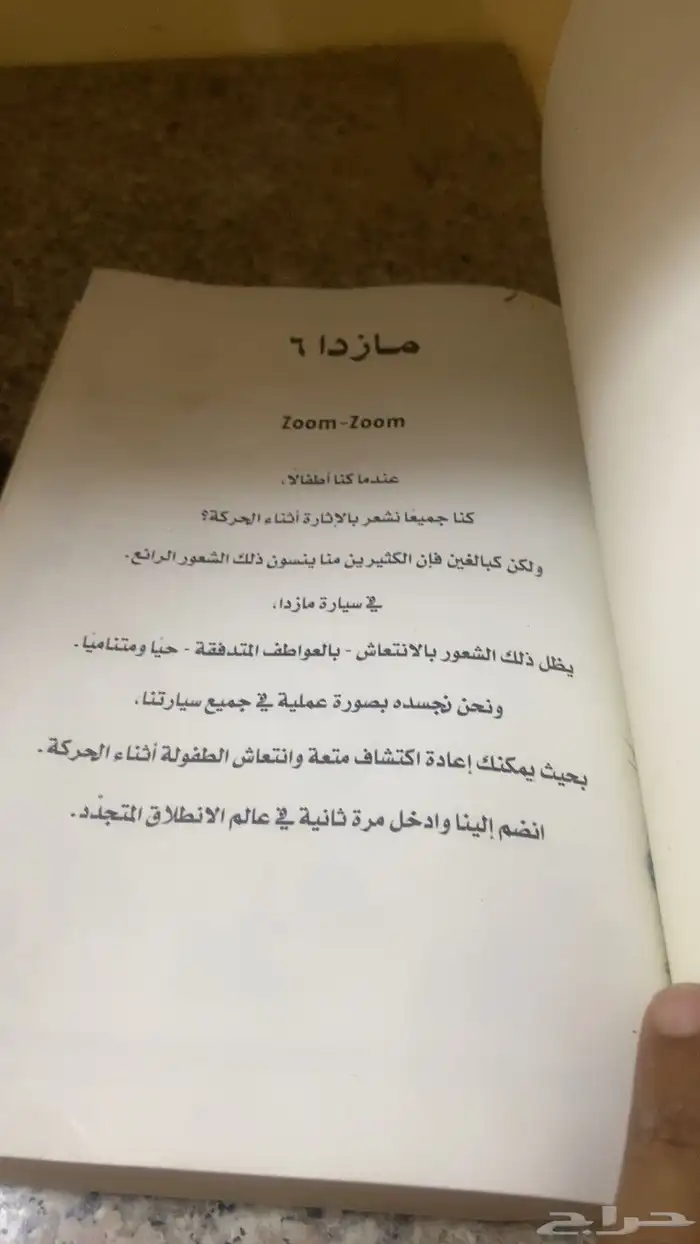 مازدا ٦
Zoom-Zoom
عندما كنا أطفالًا،
كنا جميعًا نشعر بالإثارة أثناء الحركة؟
ولكن كبالغين فإن الكثيرين منا ينسون ذلك الشعور الرائع.
في سيارة مازدا،
يظل ذلك الشعور بالانتعاش - بالعواطف المتدفقة - حيًا ومتناميًا.
ونحن نجسده بصورة عملية في جميع سيارتنا،
بحيث يمكنك إعادة اكتشاف متعة وانتعاش الطفولة أثناء الحركة.
انضم إلينا وادخل مرة ثانية في عالم الانطلاق المتجدّد.
حراج